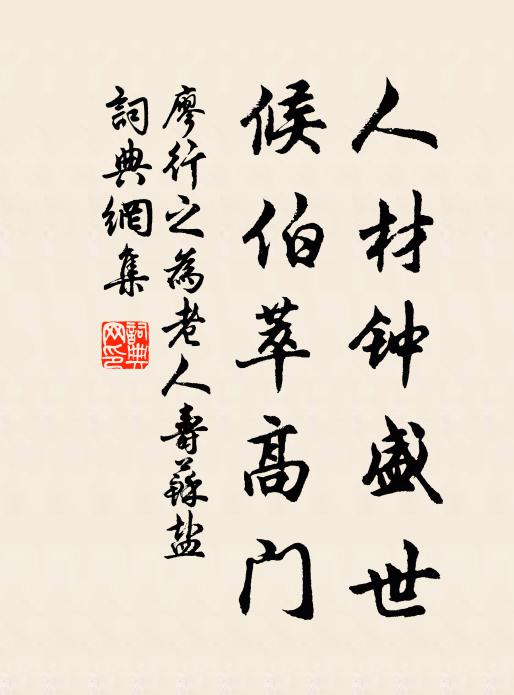 人材钟盛世
候伯萃高门
廖行之為老人壽蘇盐
詞典網集
詞典网印